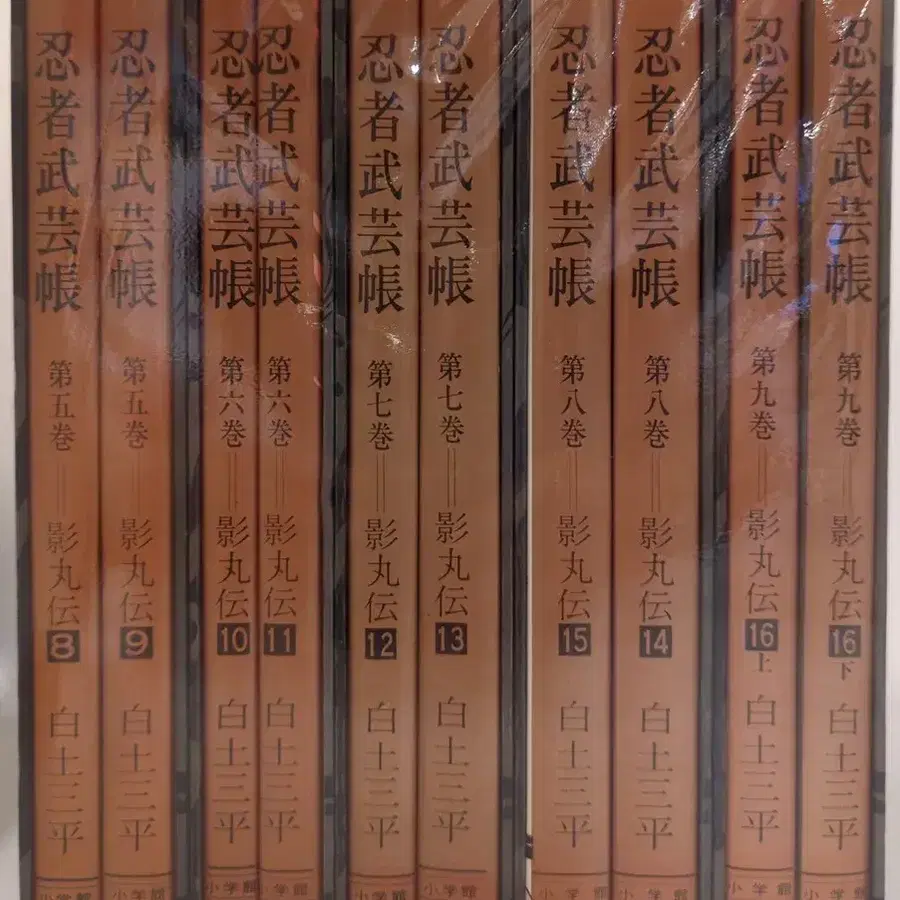 忍者武芸帳 第五巻=影丸伝 8 白土三平 小学館
忍者武芸帳 第五巻=影丸伝 9 白土三平 小学館
忍者武芸帳 第六巻=影丸伝 10 白土三平 小学館
忍者武芸帳 第六巻=影丸伝 11 白土三平 小学館
忍者武芸帳 第七巻=影丸伝 12 白土三平 小学館
忍者武芸帳 第七巻=影丸伝 13 白土三平 小学館
忍者武芸帳 第八巻=影丸伝 15 白土三平 小学館
忍者武芸帳 第八巻=影丸伝 14 白土三平 小学館
忍者武芸帳 第九巻=影丸伝 16上 白土三平 小学館
忍者武芸帳 第九巻=影丸伝 16下 白土三平 小学館